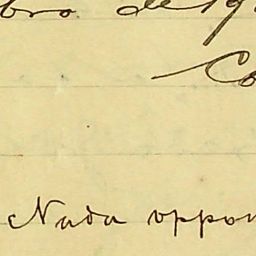 bro de 19
Co
Nada oppon